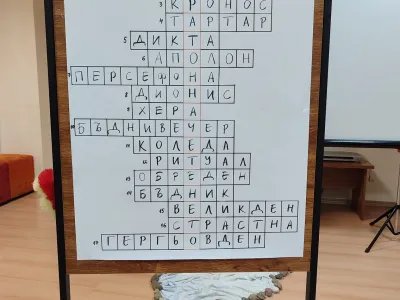 3 КРОНОС
4 ТАРТАР
5 ДИКТА
6 АПОЛОН
7 ПЕРСЕФОНА
8 ДИОНИС
9 ХЕРА
10 БЪДНИВЕЧЕР
11 КОЛЕДА
12 РИТУАЛ
13 ОБРЕДЕН
14 БЪДНИК
15 ВЕЛИКДЕН
16 СТРАСТНА
17 ГЕРГЬОВДЕН